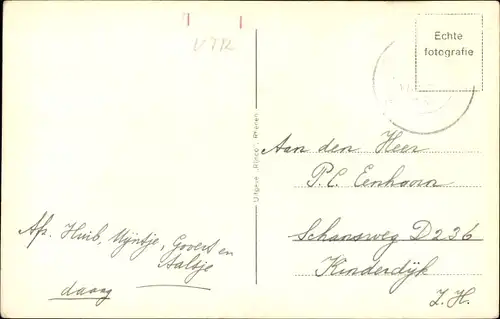 V 712
Echte
fotografie
Aan den Heer
P.C. Eenhoorn
Schansweg D236
Kinderdijk
Z.H.
Af. Huib, Wijntje, Govert en
Aaltje
daag